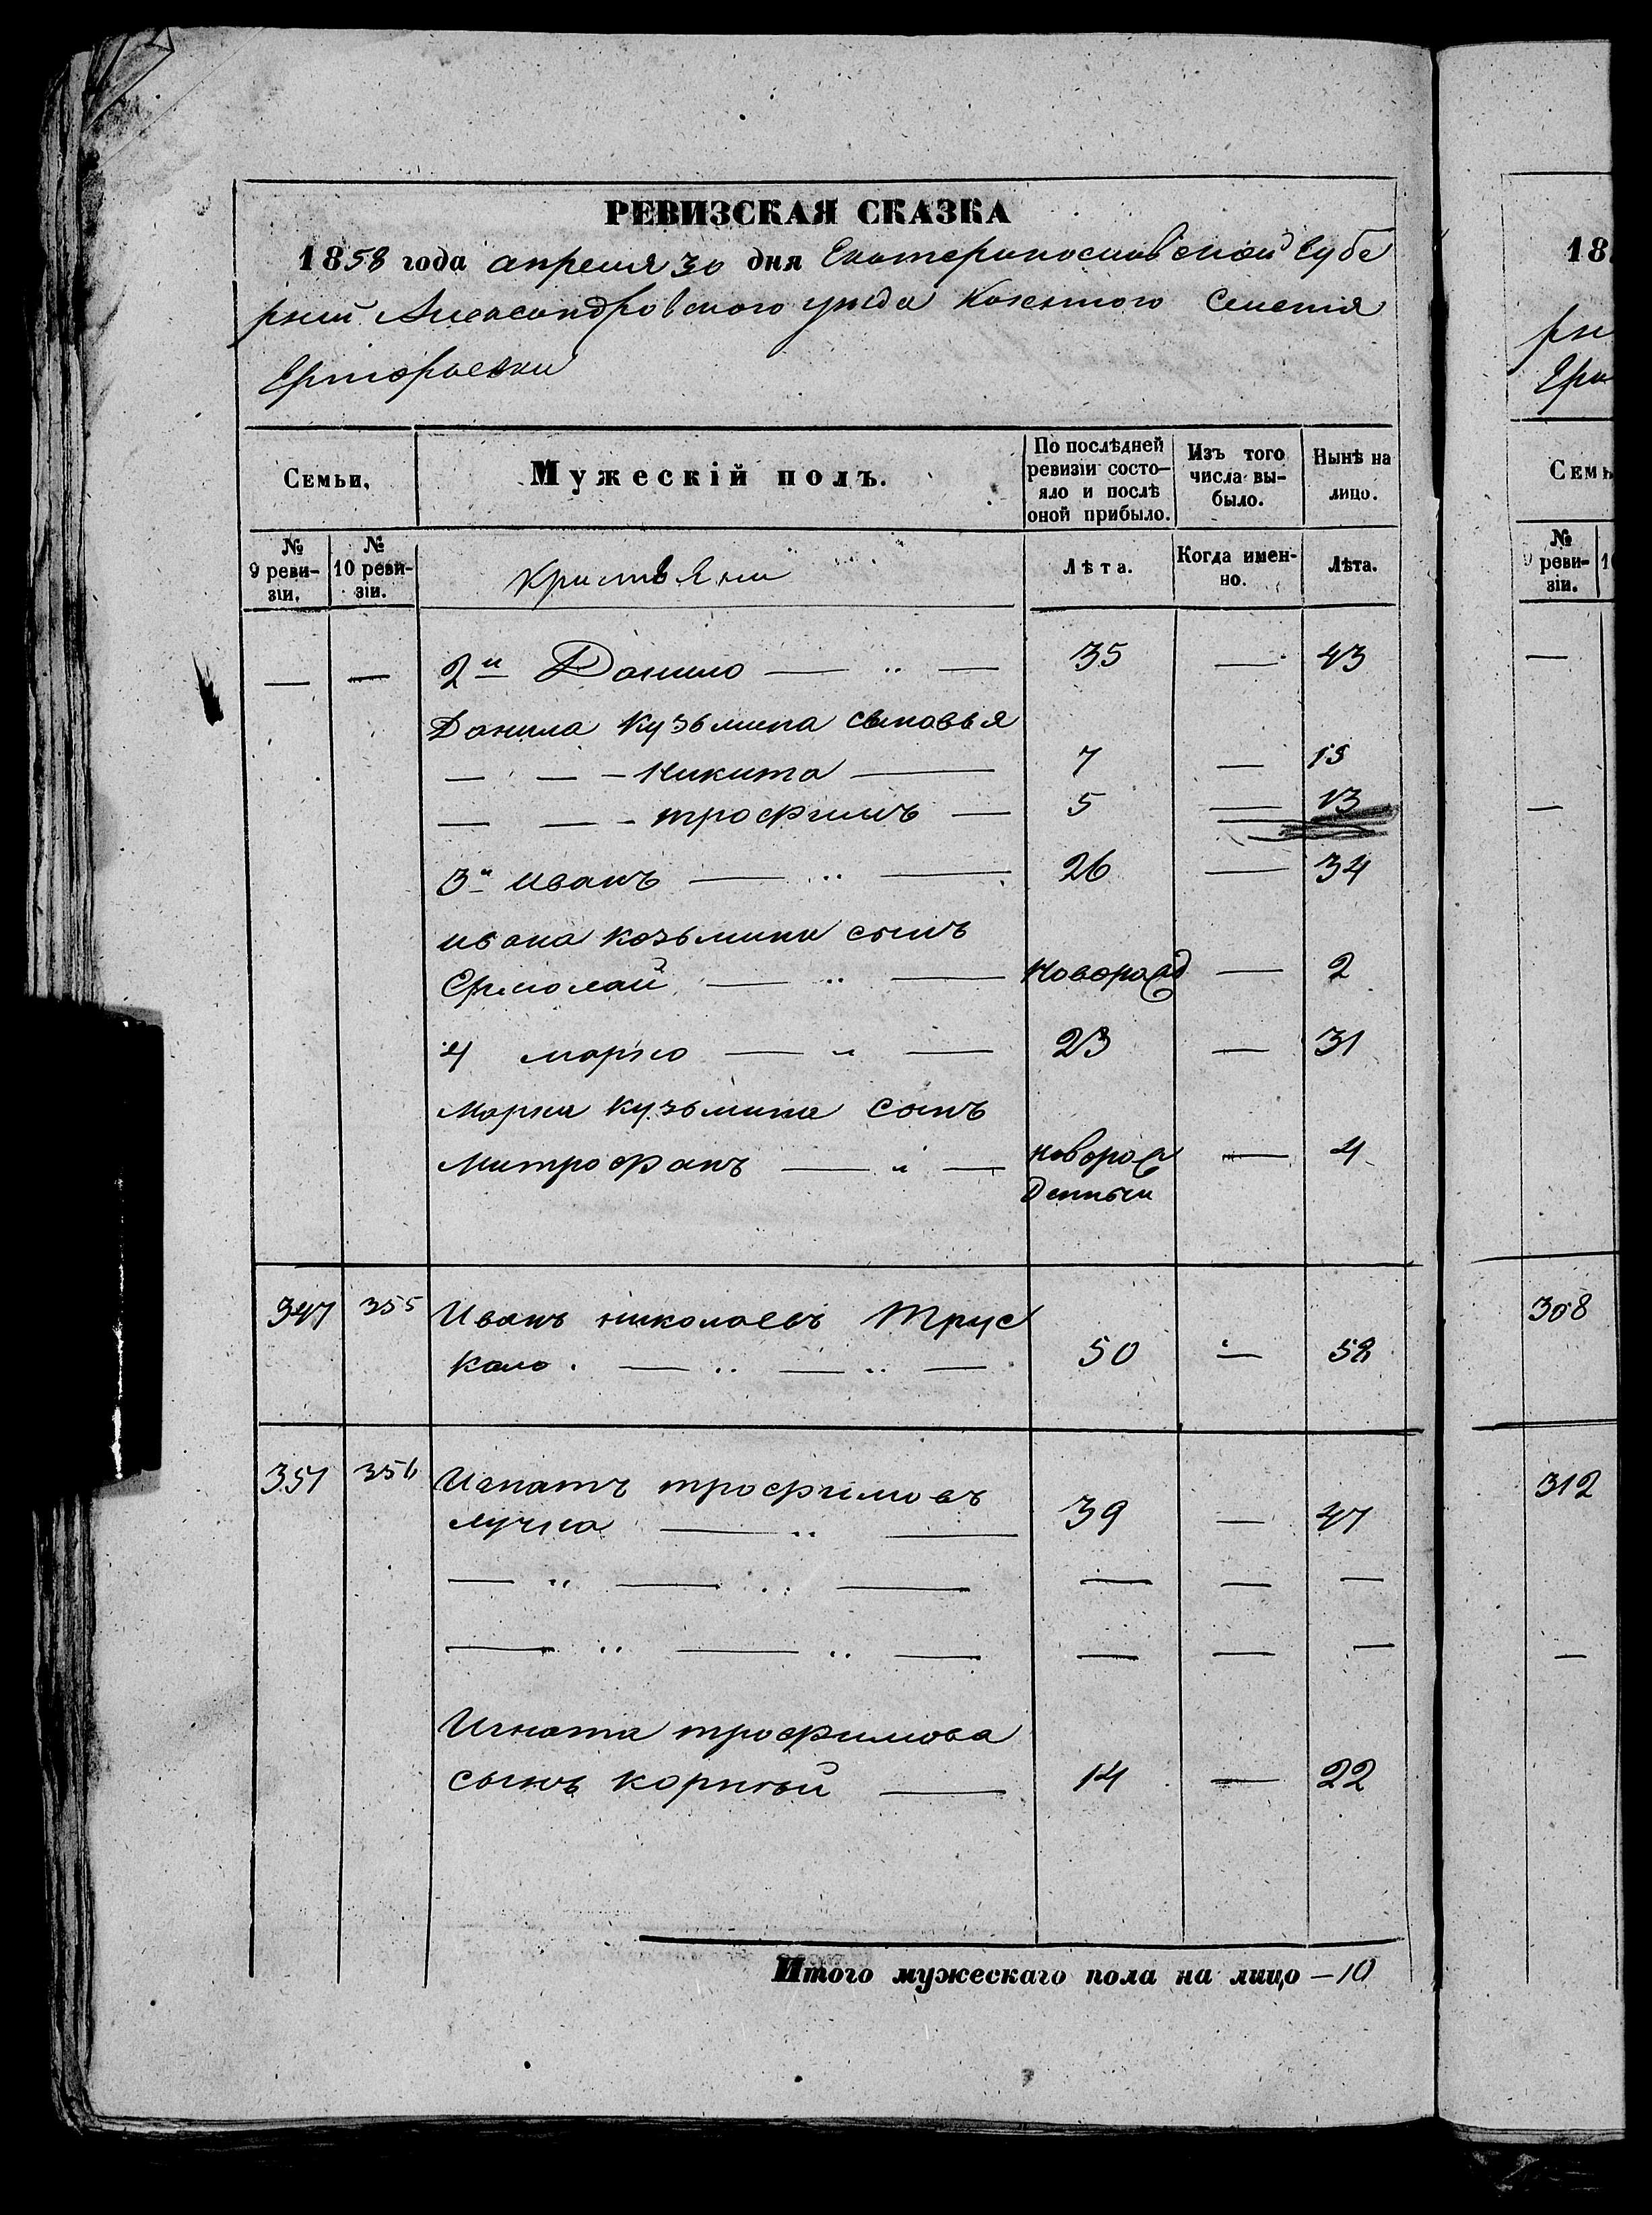 РЕВИЗСКАЯ СКАЗКА
1858 года апреля 30 дня Екатеринославской Губе
рнии Александровского уезда Казенного Селения
Григорьевки
Семьи,
Мужескій полъ.
По послѣдней ревизіи состо-
яло и послѣ
оной прибыло.
Изъ того
числа вы-
было.
Нынѣ на
лицо.
№
9 реви-
зіи.
№
10 реви-
зіи.
Кристьяни
Лѣта.
Когда имен-
но.
Лѣта.
— — 2й Данило — „ — 35 — 43
Данила Кузьмина сыновья
— — - Никита — 7 — 15
— — - трофимъ — 5 — 13
3й иванъ — „ — 26 — 34
ивана Козьмина сынъ
Ермолай — „ — Новорожд — 2
4 марко — „ — 23 — 31
Марка Кузьмина Сынъ
Митрофанъ — „ — новорож — 4
денный
347 355 Иванъ николаевъ Трус
кало. — „ — „ — 50 — 58
351 356 Игнатъ трофимовъ
лучка — „ — 39 — 47
— „ — „ — — — —
— „ — „ — — — —
Игната трофимова
сынъ корнѣй — 14 — 22
Итого мужескаго пола на лицо — 10
18
рн
Гри
Семь
№
9 реви-
зіи.
1
—
—
308
312
—